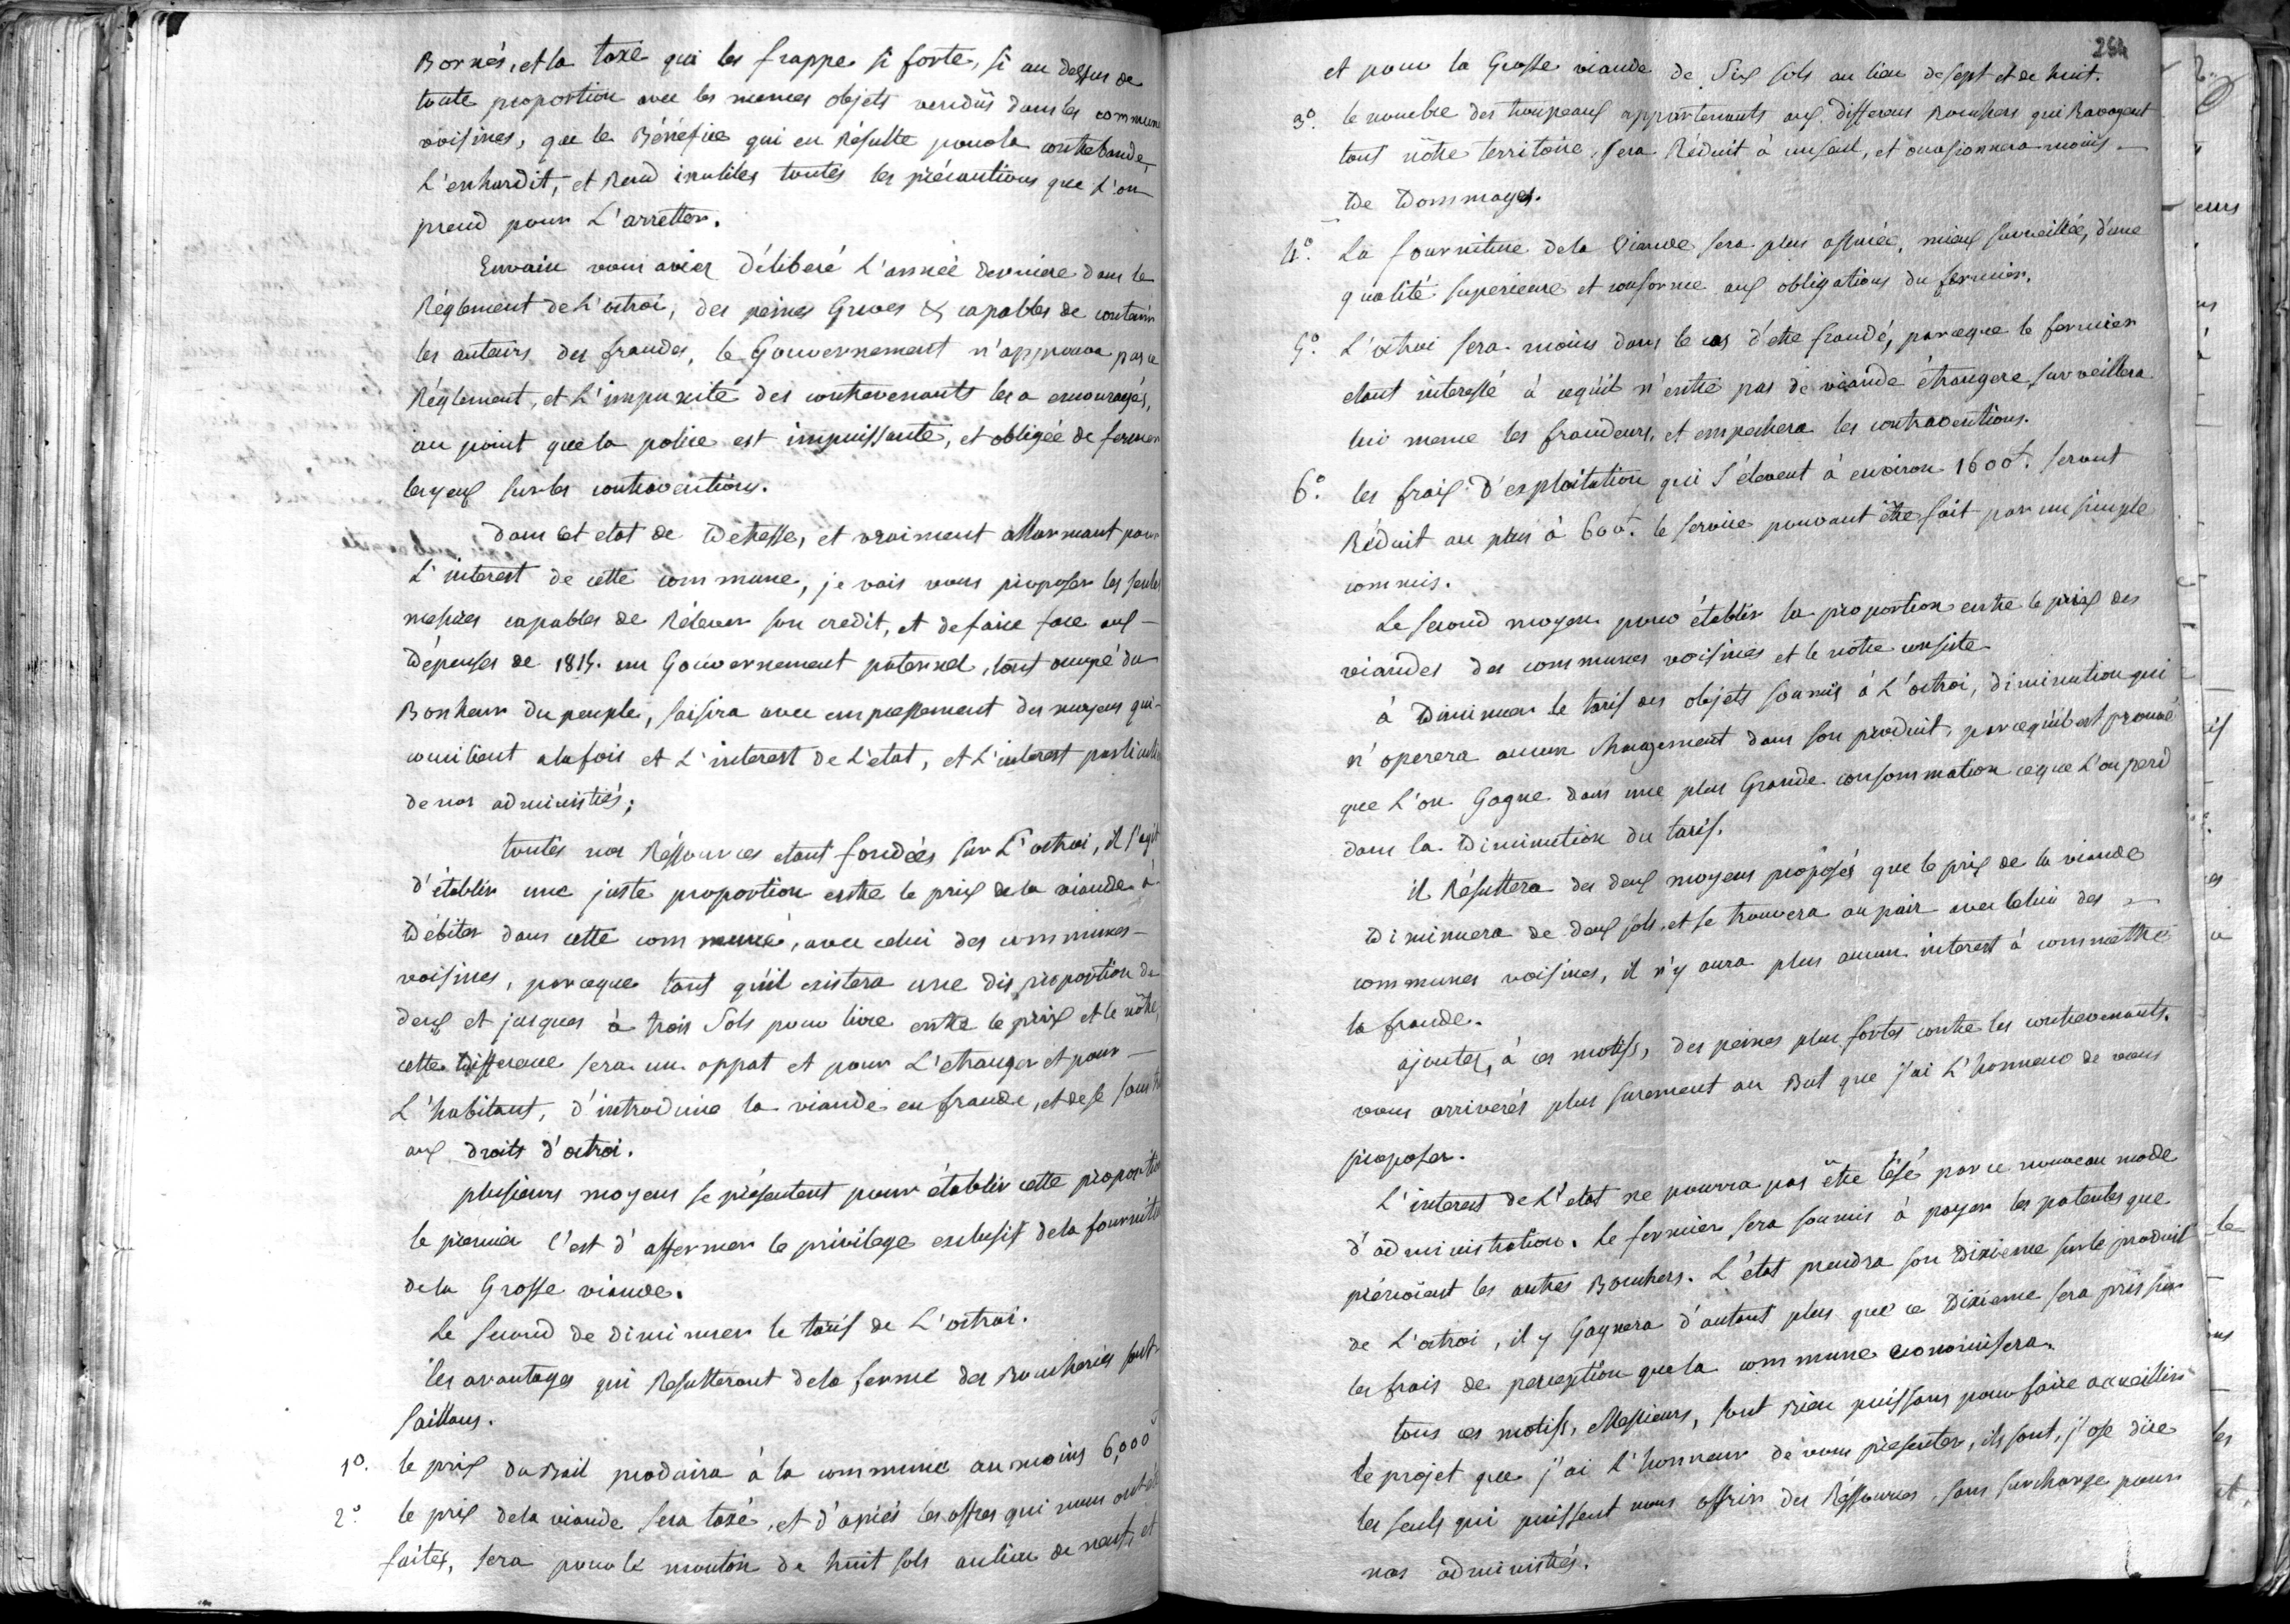 Bornés, et la taxe qui les frappe si forte, si au dessus de
toute proportion avec les memes objets vendus dans les commune
voisines, que le Bénéfice qui en Résulte pour la contrebande,
L'enhardit, et Rend inutiles toutes les précautions que L'on
prend pour L'arretter.
Envain vous aviez délibéré L'année derniere dans le
Réglement de L'octroi, des peines Graves & capables de contenir
les auteurs des fraudes, le Gouvernement n'approuva pas ce
Réglement, et L'impunité des contrevenants les a encouragés,
au point que la police est impuissante, et obligée de fermer
les yeux sur les contraventions.
dans cet etat de Detresse, et vraiment allarmant pour
L'interest de cette commune, je vais vous proposer les seules
mesures capables de Rélever son credit, et de faire face aux
Dépenses de 1814. un Gouvernement paternel, tout occupé du
Bonheur du peuple, saisira avec empressement des moyens qui
concilient alafois et L'interest de L'etat, et L'interest particulier
de nos administrés;
toutes nos Réssources etant fondées sur L'octroi, il s'agit
d'établir une juste proportion entre le prix de la viande à
Débiter dans cette commune, avec celui des communes
voisines, parceque tant qu'il existera une disproportion de
deux et jusques à trois Sols pour livre entre le prix et le nôtre,
cette Difference sera un appat et pour L'etranger et pour
L'habitant, d'introduire la viande en fraude, et de se
aux droits d'octroi.
plusieurs moyens se présentent pour établir cette proportion
le premier c'est d'affermer le privilege exclusif de la fourniture
de la Grosse viande.
Le second de diminuer le tarif de L'octroi.
les avantages qui Résulteront de la ferme des Boucheries sont
saillans.
1º. le prix du Bail produira à la commune au moins 6,000
2º. le prix de la viande sera taxé, et d'après les offres qui nous ont
faites, sera pour le mouton de huit sols au lieu de neuf, et
254
et pour la Grosse viande de Six sols au lieu de sept et de huit.
3º. le nombre des troupeaux appartenants aux differens Bouchers qui Ravagent
tout nôtre territoire, sera Réduit à un seul, et occasionnera moins
De Dommages.
4º. La fourniture de la Viande sera plus assurée, mieux surveillée, d'une
qualité superieure et conforme aux obligations du fermier.
5º. L'octroi sera moins dans le cas d'etre fraudé, parceque le fermier
etant interessé à cequ'il n'entre pas de viande étrangere surveillera
lui meme les fraudeurs, et empechera les contraventions.
6º. les fraix d'exploitation qui s'élevent à environ 1600f. seront
Réduit au plus à 600f. le service pouvant être fait par un simple
commis.
Le second moyen pour établir la proportion entre le prix des
viandes des communes voisines et le notre consiste
à Diminuer le tarif des objets soumis à L'octroi, diminution qui
n'operera aucun changement dans son produit, parcequ'il est prouvé
que L'on Gagne dans une plus Grande consommation ceque L'on perd
dans la Diminution du tarif.
il Résultera des deux moyens proposés que le prix de la viande
Diminuera de deux sols, et se trouvera au pair avec celui des
communes voisines, il n'y aura plus aucun interest à commettre
la fraude.
ajoutez, à ces motifs, des peines plus fortes contre les contrevenants.
vous arriverés plus surement au But que j'ai L'honneur de vous
proposer.
L'interest de L'etat ne pourra pas être lésé par ce nouveau mode
d'administration. Le fermier sera soumis à payer les patentes que
les autres Bouchers. L'état prendra son Dixieme sur le produit
de L'octroi, il y Gagnera d'autant plus que ce Dixieme sera pris sur
les frais de perception que la commune economisera.
tous ces motifs, Messieurs, sont Bien puissans pour faire accueillir
le projet que j'ai L'honneur de vous présenter, ils sont, j'ose dire
les seuls qui puissent nous offrir des Réssources sans surcharge pour
nos administrés.